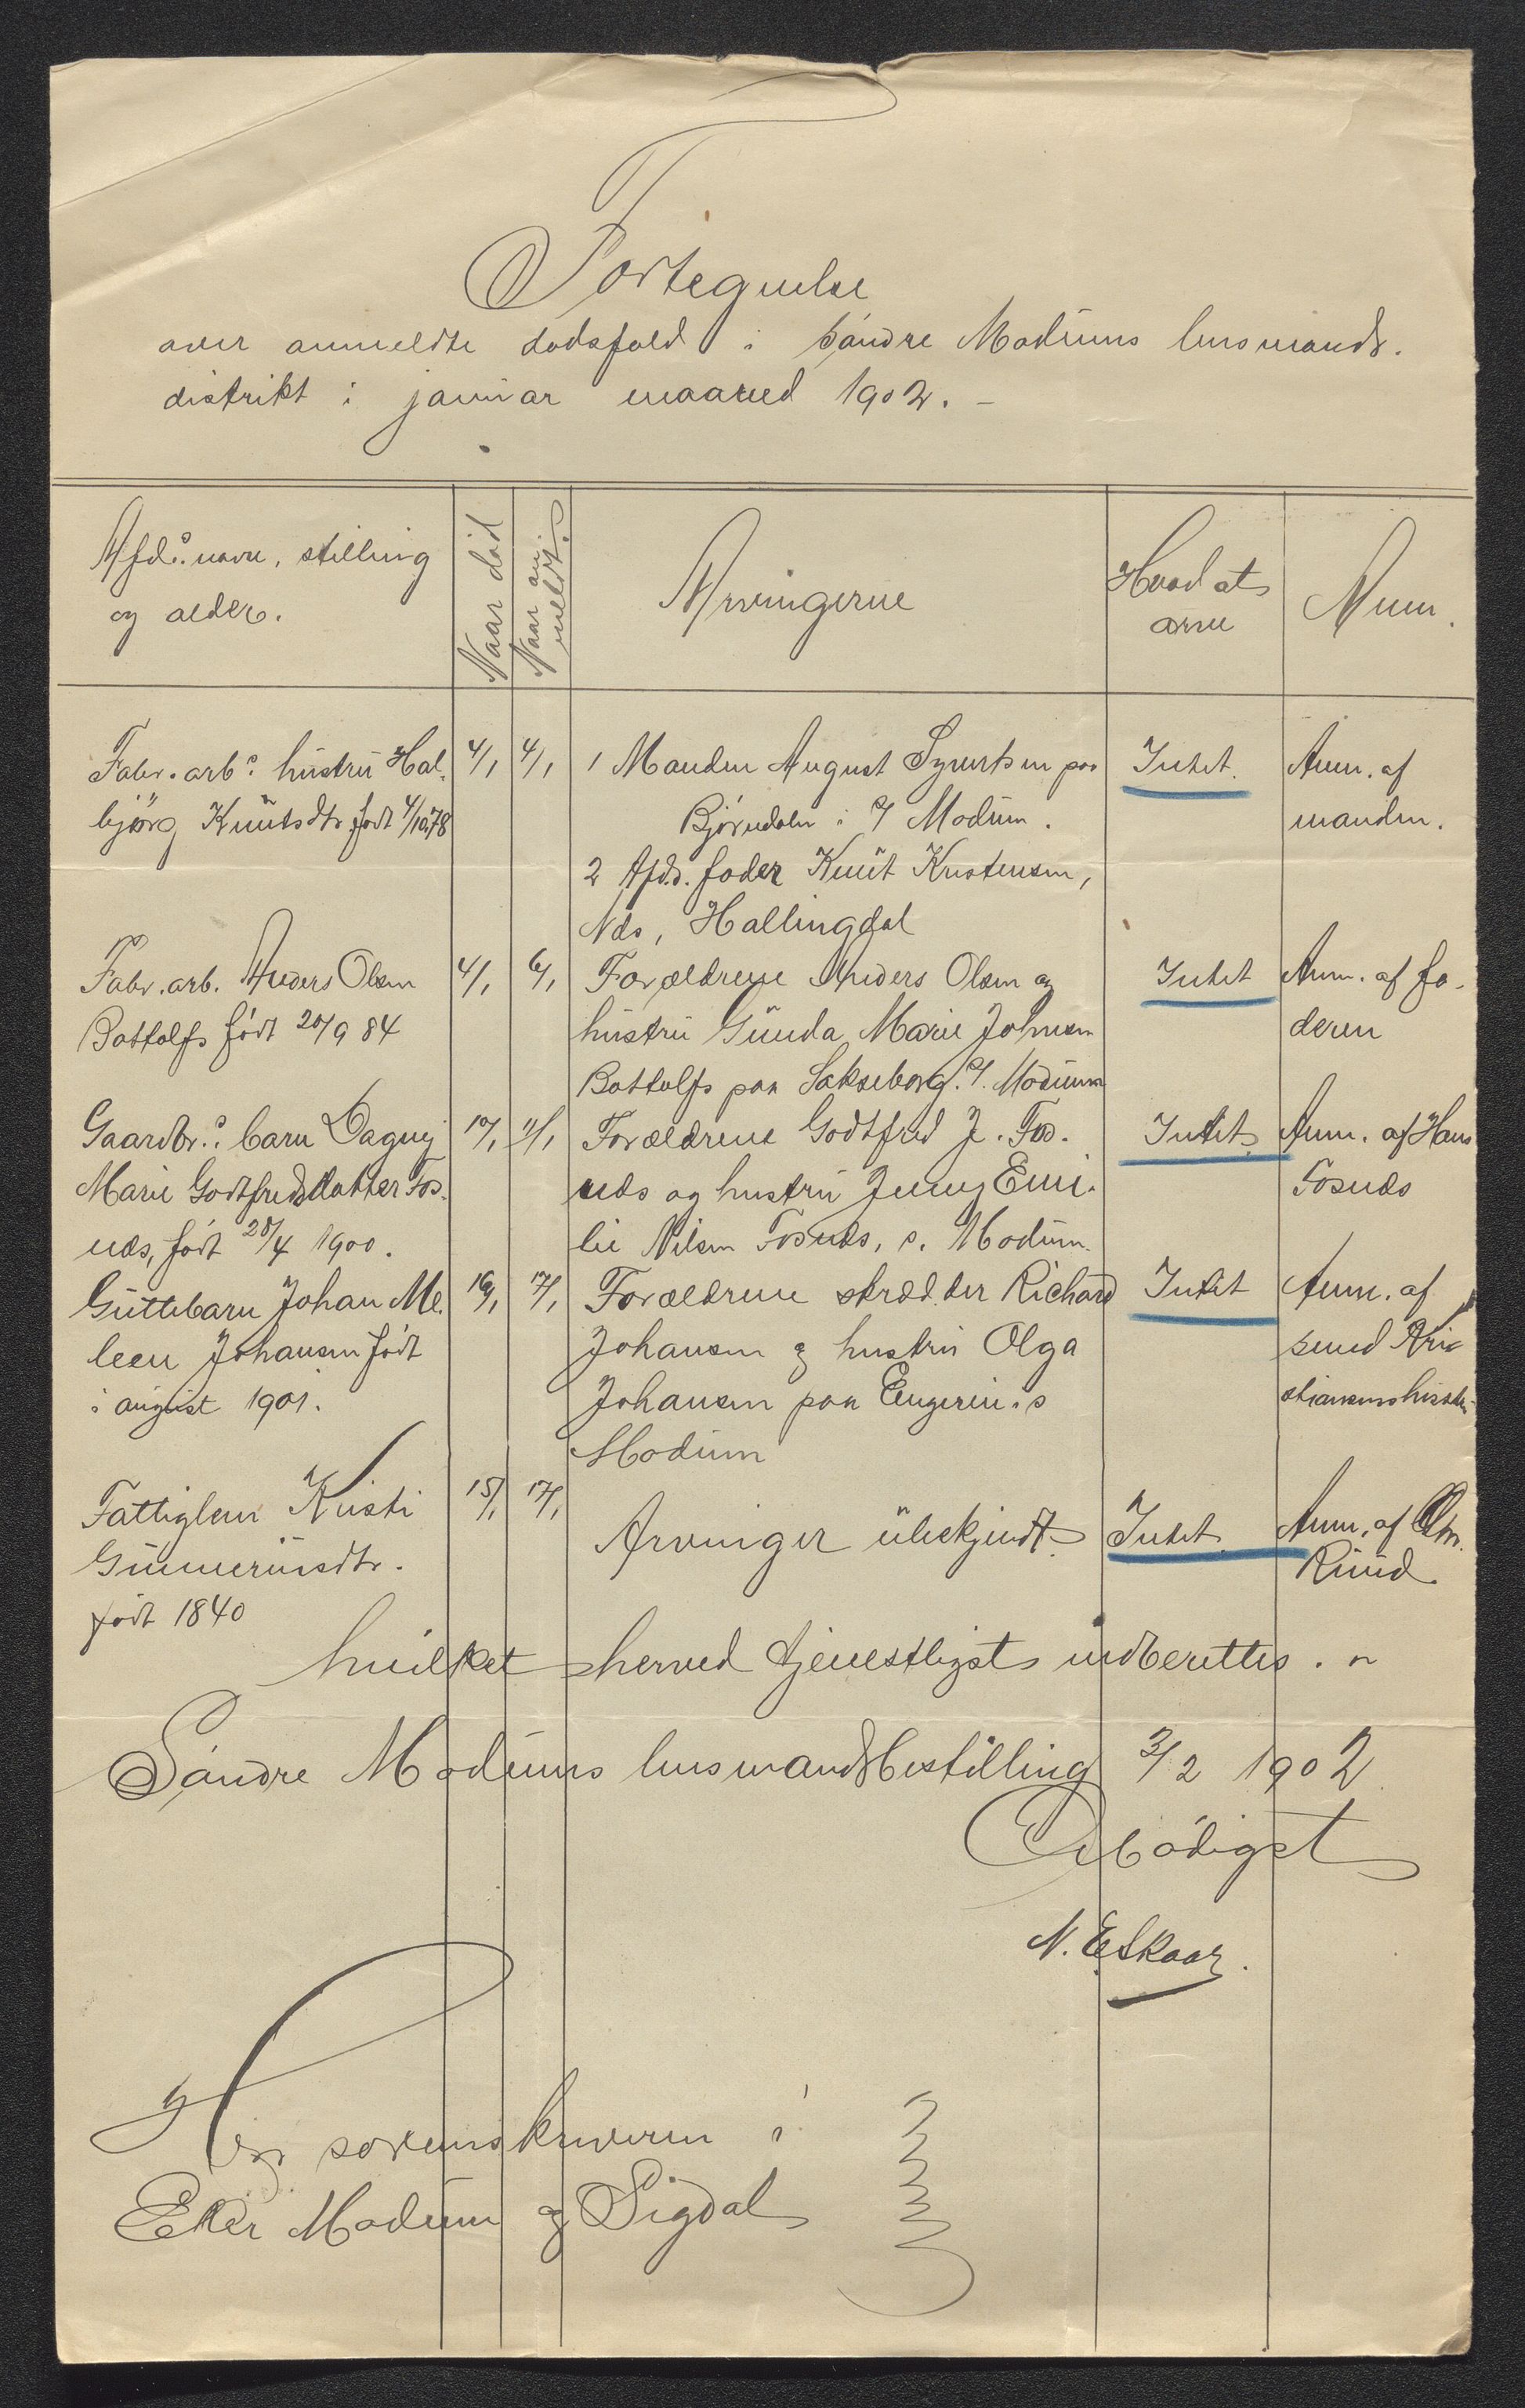 Fortegnelse
over anmeldte dødsfald i søndre Modums lensmands-
distrikt i januar maaned 1902. -
Afd.s navn, stilling
og alder.
Naar død
Naar an-
meldt.
Arvingerne
Hvad at
arve
Anm.
Fabr. arb.s hustru Hal-
bjørg Knutsdtr. født 4/10 78
4/1
4/1
1 Manden August Syvertsen paa
Bjørndalen i S/ Modum.
2 Afd.s. fader Knut Kristensen,
Næs, Hallingdal
Intet.
Anm. af
manden.
Fabr. arb. Anders Olsen
Bottolfs født 20/9 84
4/1
6/1
Forældrene Anders Olsen og
hustru Gunda Marie Johnsen
Bottolfs paa Sakseborg. S/. Modum
Intet
Anm. af fa-
deren
Gaardbr.s barn Dagny
Marie Godtfredsdatter Fos-
næs, født 28/4 1900.
10/1
11/1
Forældrene Godtfred J. Fos-
næs og hustru Jenny Emi-
lie Nilsen Fosnæs, s. Modum.
Intet
Anm. af Hans
Fosnæs
Guttebarn Johan Me-
leen Johansen født
i august 1901.
16/1
17/1
Forældrene skrædder Richard
Johansen og hustru Olga
Johansen paa Engerin. s
Modum
Intet
Anm. af
Fattiglem Kristi
Gunnerüsdtr.
født 1840
15/1
17/1
Arvinger ubekjendt.
Intet.
Anm. af
Ruud.
hvilket herved tjenestligst indberettes. -
Søndre Modums lensmandsbestilling 3/2 1902.
Ærbødigst
N. E. Skaar.
Hr. sorenskriveren i
Eker Modum og Sigdal